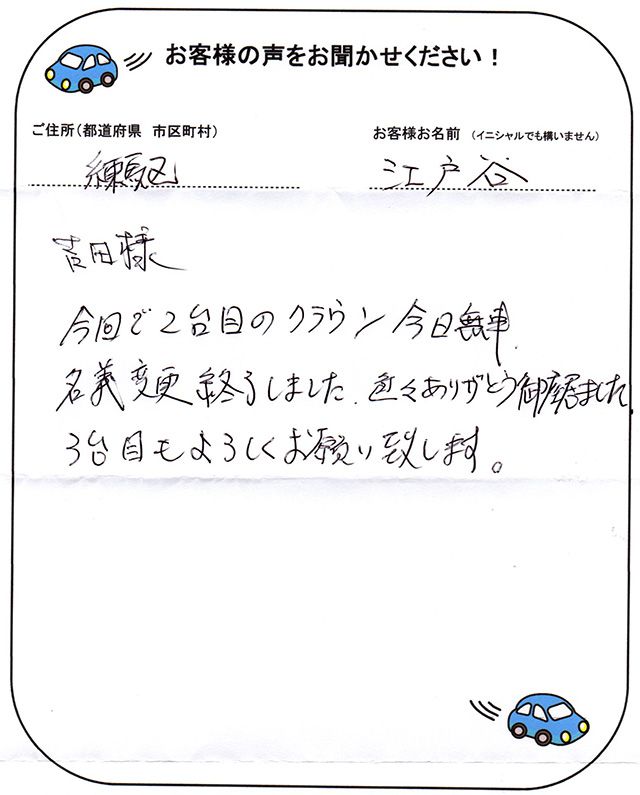 お客様の声をお聞かせください！
ご住所（都道府県　市区町村） お客様お名前 （イニシャルでも構いません）
練馬区 江戸谷
吉田様
今回で2台目のクラウン今日無事
名義変更終了しました.色々ありがとう御座居ました.
3台目もよろしくお願い致します。